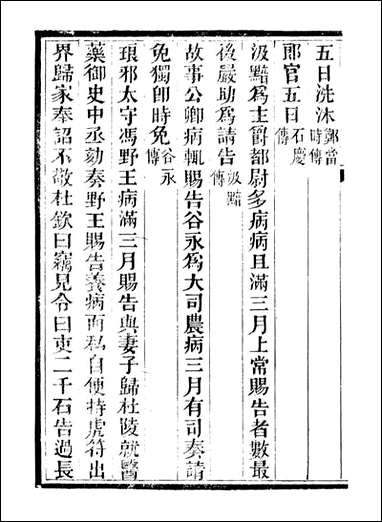 五日洗沐鄭當時傳
郎官五日石慶傳
汲黯爲主爵都尉多病病且滿三月上常賜告者數最
後嚴助爲請告汲黯傳
故事公卿病輒賜告谷永爲大司農病三月有司奏請
免獨卽時免谷永傳
琅邪太守馮野王病滿三月賜告與妻子歸杜陵就醫
藥御史中丞劾奏野王賜告養病而私自便持虎符出
界歸家奉詔不敬杜欽曰竊見令曰吏二千石告過長